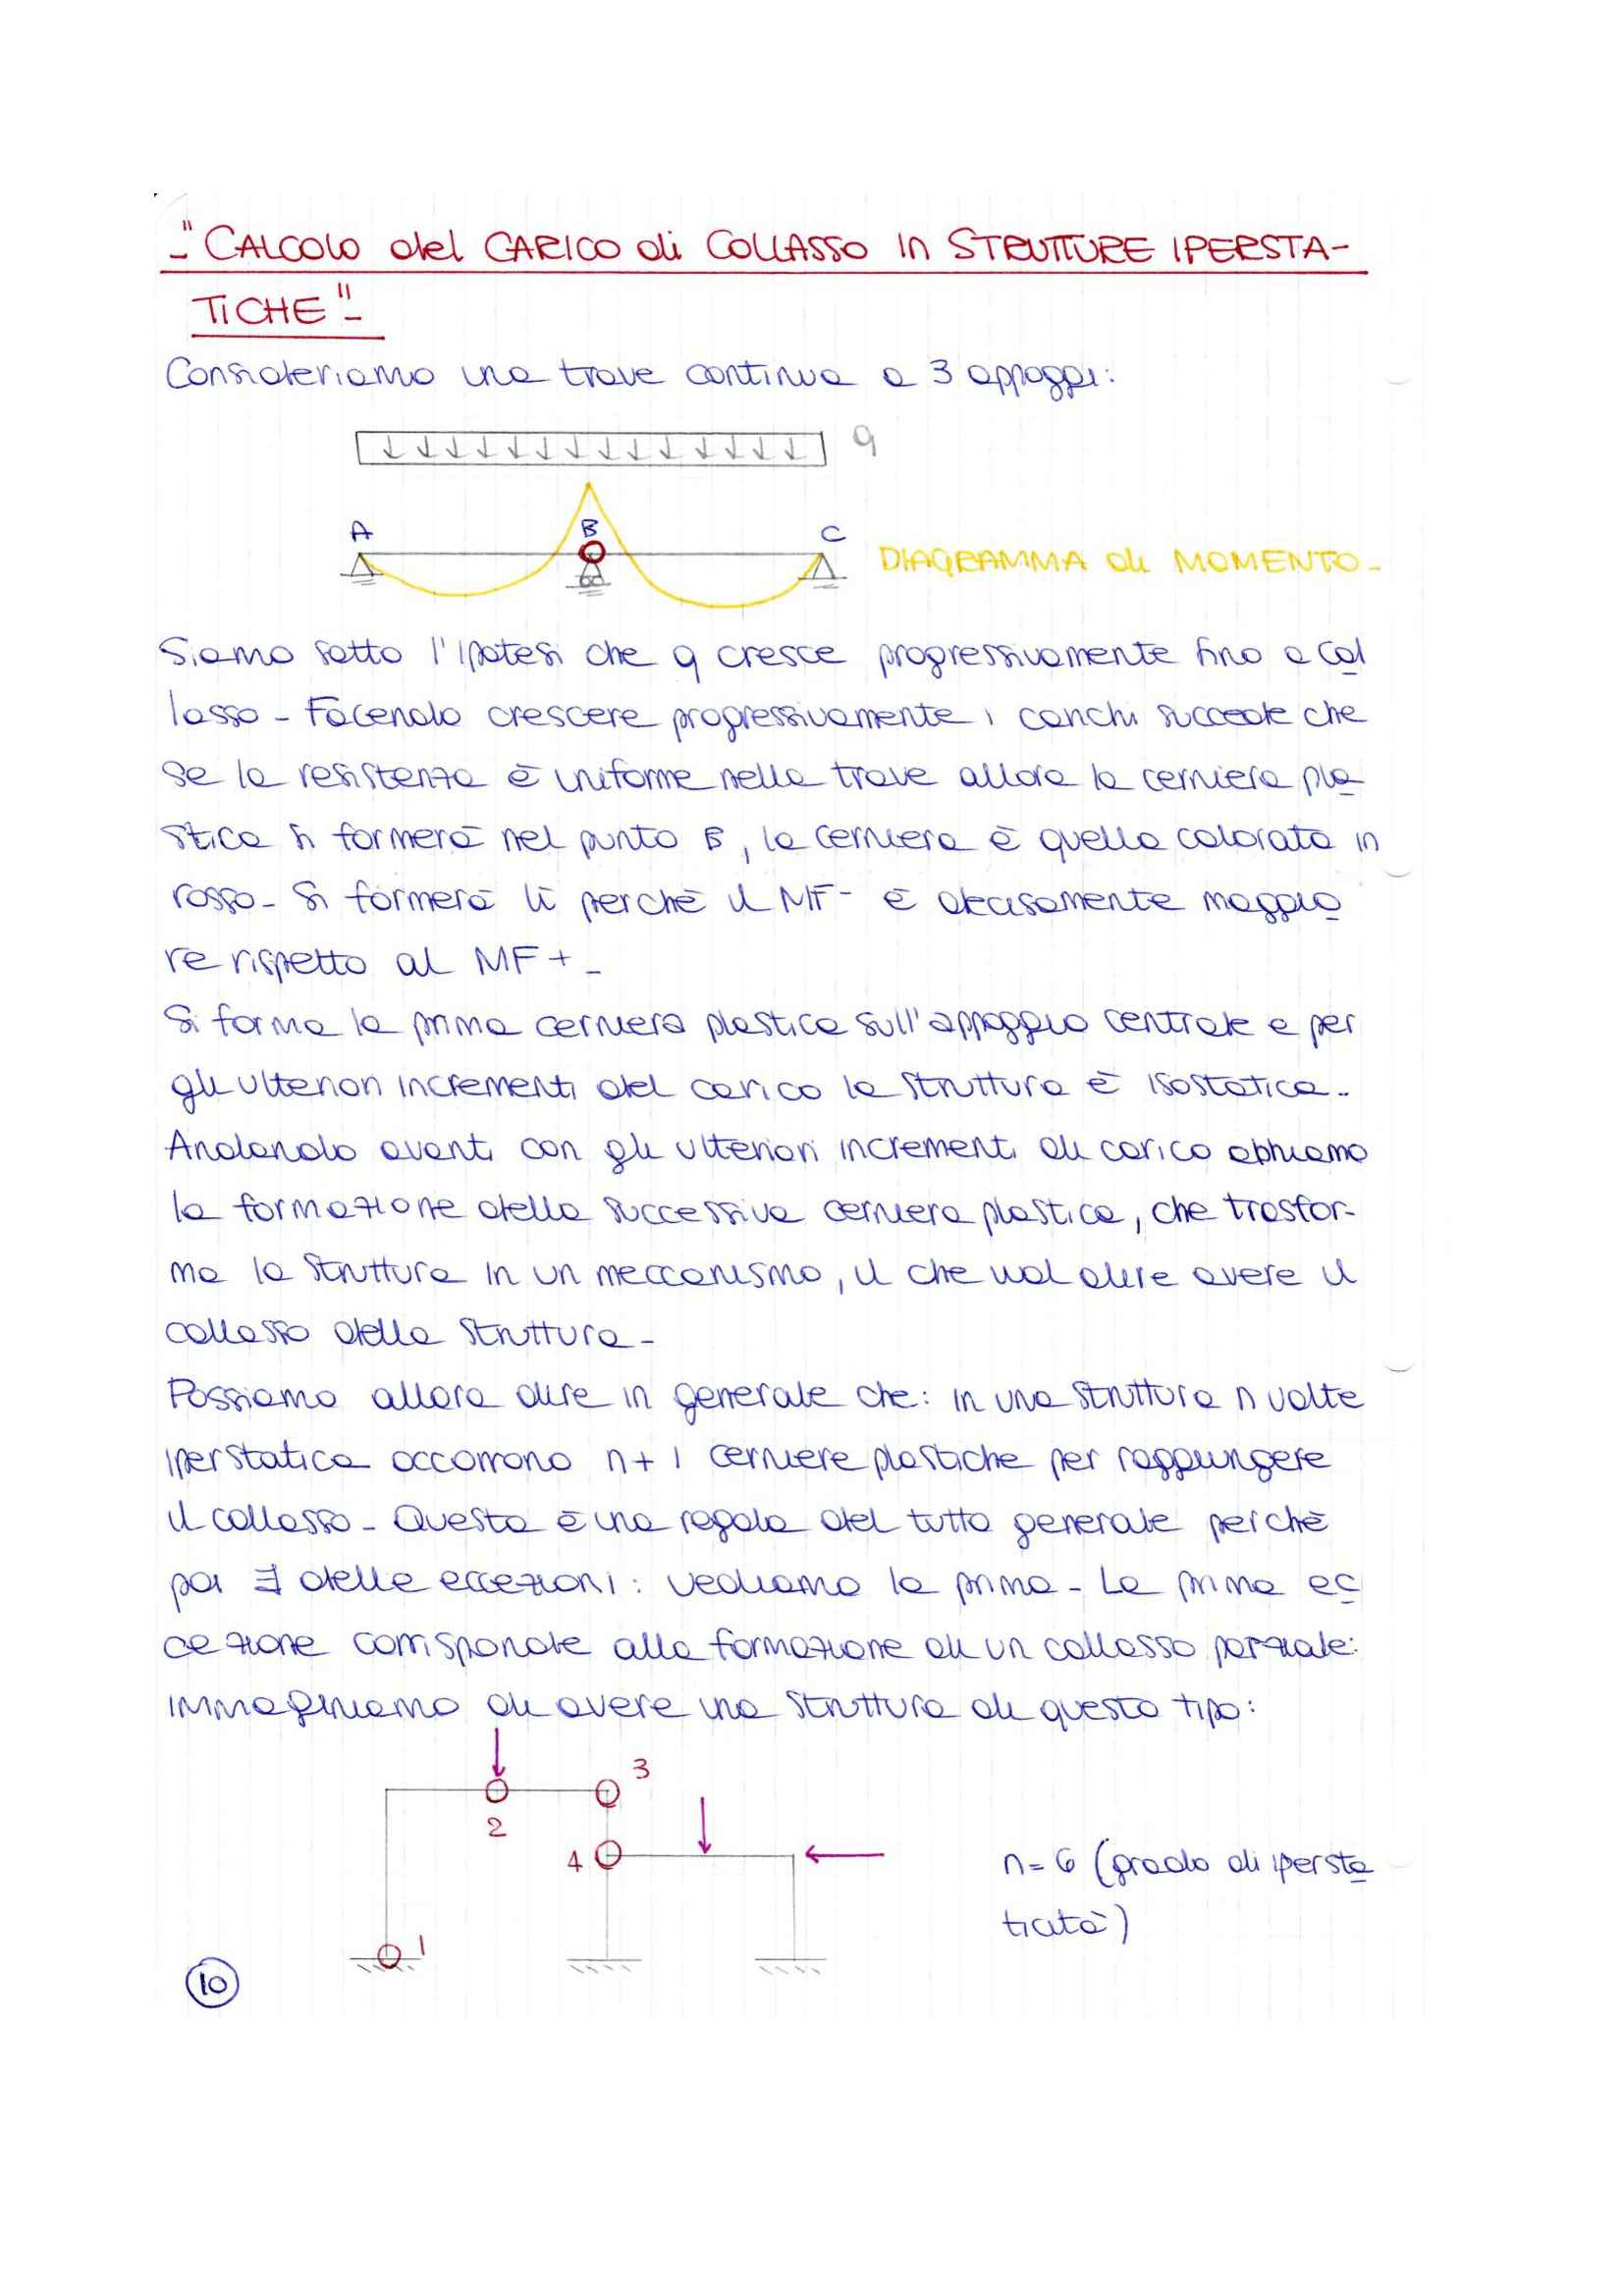 -"CALCOLO del CARICO di COLLASSO in STRUTTURE IPERSTA-
TICHE"-
Consideriamo una trave continua a 3 appoggi:
q
A B C DIAGRAMMA di MOMENTO-
Siamo sotto l'ipotesi che q cresce progressivamente fino a col
lasso - Facendo crescere progressivamente i carichi succede che
se la resistenza è uniforme nella trave allora la cerniera pla
stica si formerà nel punto B, la cerniera è quella colorata in
rosso - Si formerà lì perchè il MF- è decisamente maggio
re rispetto al MF+ -
Si forma la prima cerniera plastica sull'appoggio centrale e per
gli ulteriori incrementi del carico la struttura è isostatica..
Andando avanti con gli ulteriori incrementi di carico abbiamo
la formazione della successiva cerniera plastica, che trasfor-
ma la struttura in un meccanismo, il che vuol dire avere il
collasso della struttura -
Possiamo allora dire in generale che: in una struttura n volte
iperstatica occorrono n+1 cerniere plastiche per raggiungere
il collasso - Questa è una regola del tutto generale perchè
poi ∃ delle eccezioni: vediamo la prima - La prima ec
cezione corrisponde alla formazione di un collasso parziale:
immaginiamo di avere una struttura di questo tipo:
3
2
4
n=6 (grado di ipersta
ticità)
1
10